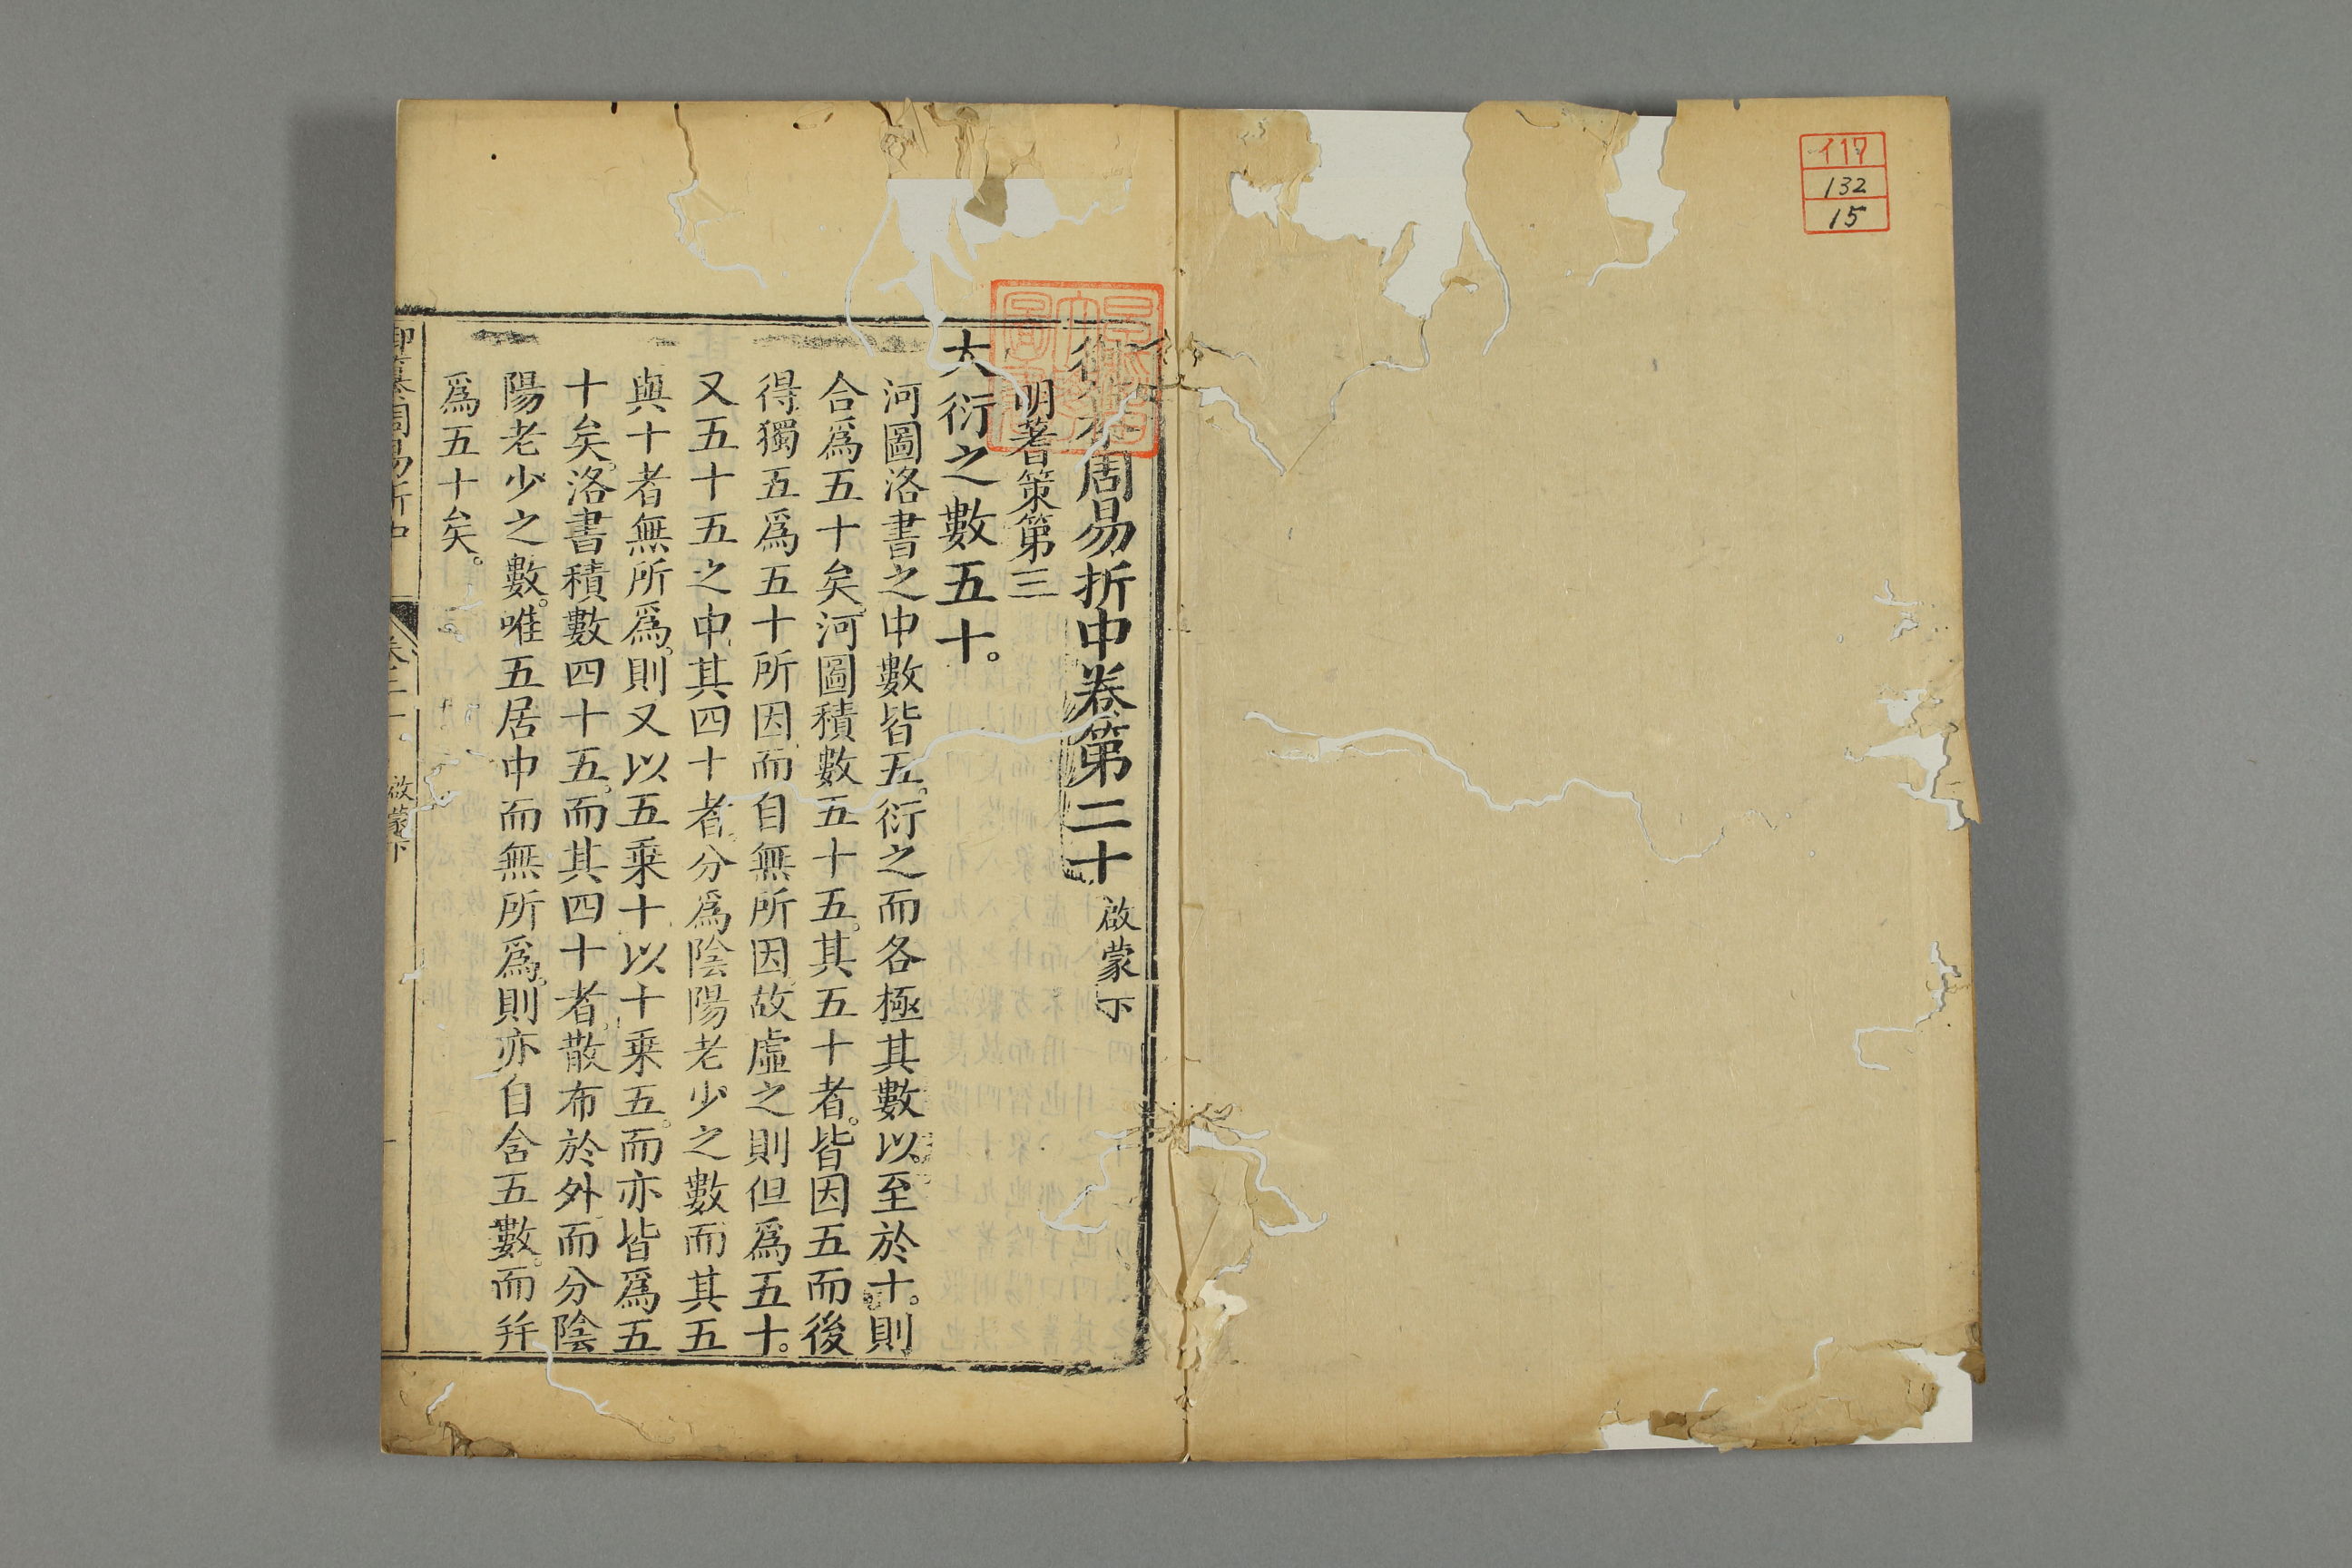 御纂周易折中卷第二十 啟蒙下
明蓍策第三
大衍之數五十。
河圖洛書之中數皆五。衍之而各極其數以至於十。則
合爲五十矣。河圖積數五十五。其五十者。皆因五而後
得獨五爲五十所因而自無所因故虛之則但爲五十。
又五十五之中其四十者分爲陰陽老少之數而其五
與十者無所爲。則又以五乗十以十乗五。而亦皆爲五
十矣。洛書積數四十五。而其四十者。散布於外而分陰
陽老少之數。唯五居中而無所爲。則亦自含五數。而幷
爲五十矣。
御纂周易折中 卷二十 啟蒙下
117
132
15